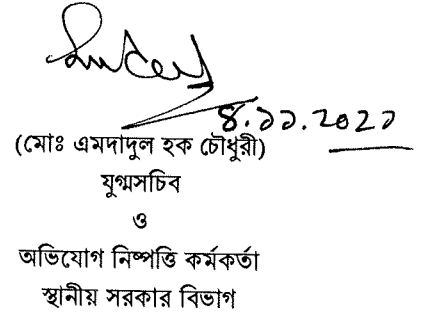 ৪.১১.২০২১
(মোঃ এমদাদুল হক চৌধুরী)
যুগ্মসচিব
ও
অভিযোগ নিষ্পত্তি কর্মকর্তা
স্থানীয় সরকার বিভাগ